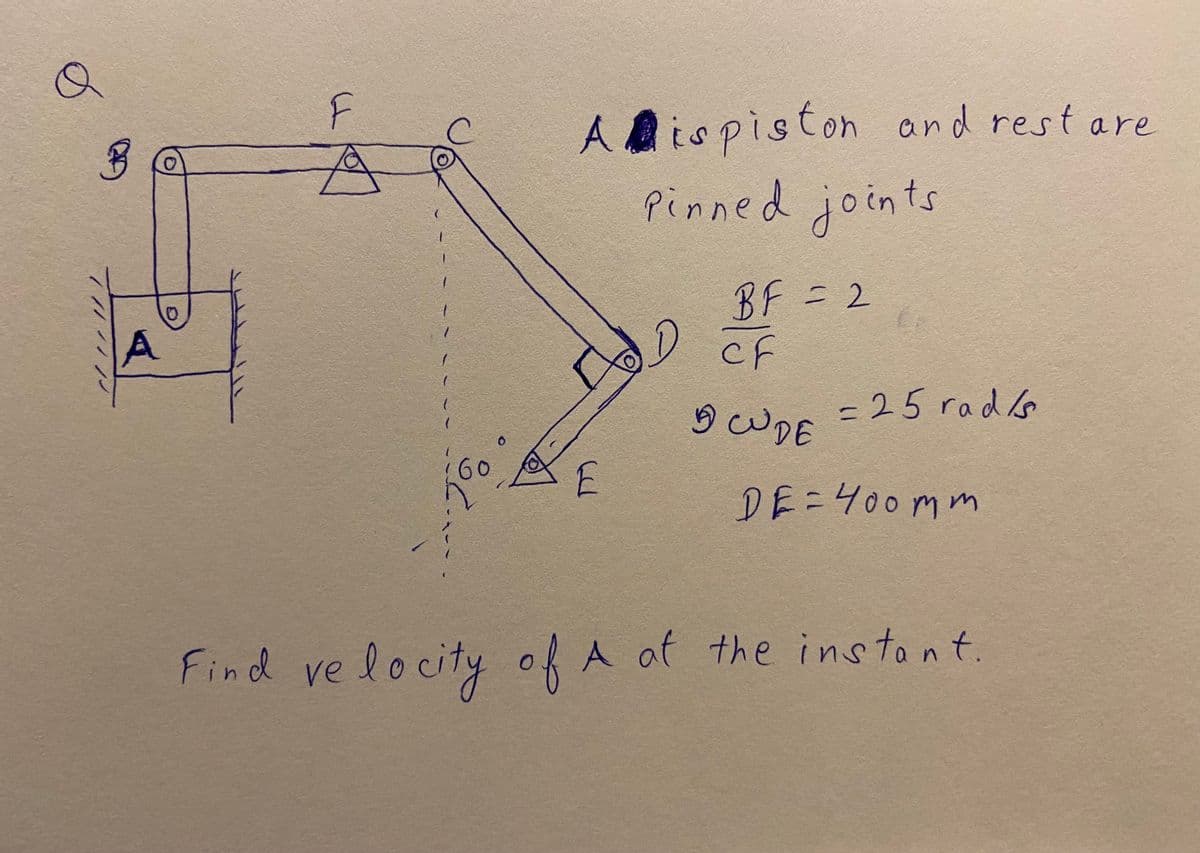 Q
F
C
B
A is piston and rest are
Pinned joints
BF = 2
CF
D
A
ω DE = 25 rad/s
60°
E
DE = 400 mm
Find velocity of A at the instant.